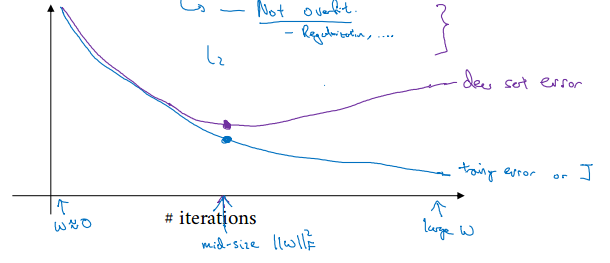 ↳ — Not overfit.
- Regularization, ....
L2
dev set error
traing error or J
w≈0
# iterations
mid-size ||w||²_F
large w